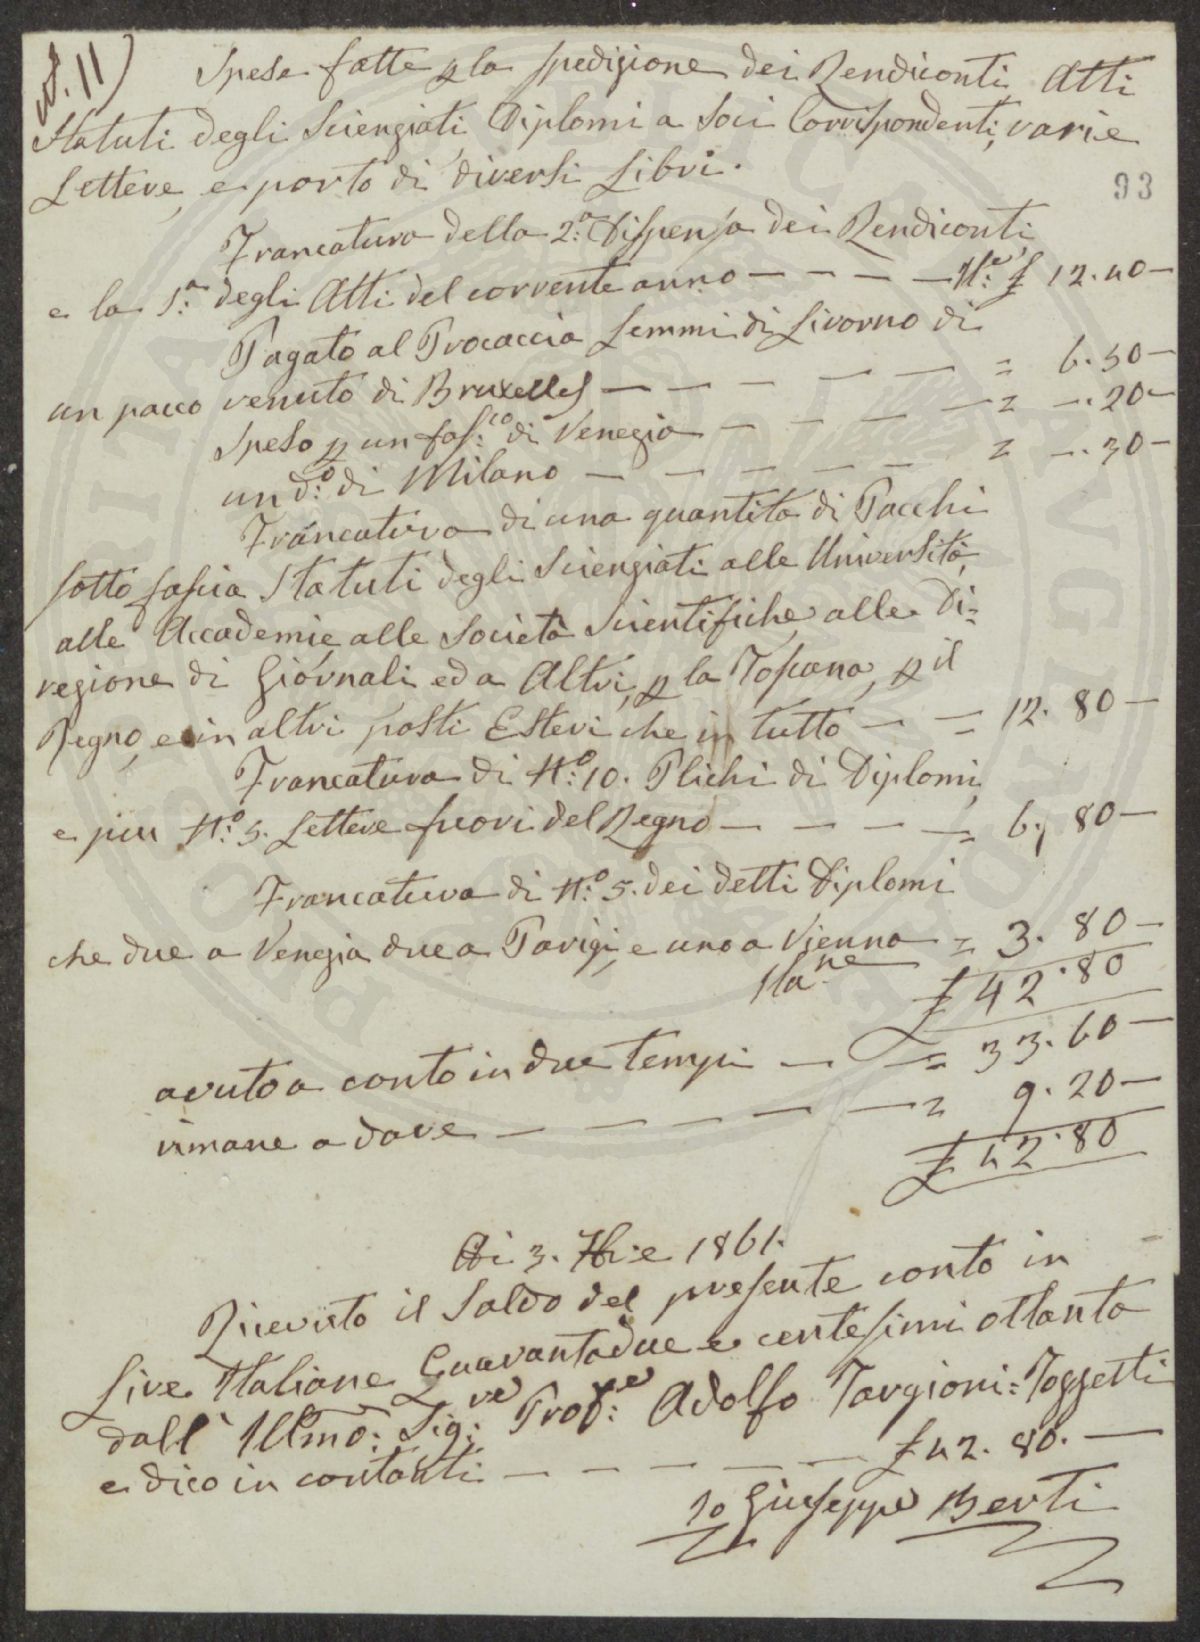 N. 11)
Spese fatte p la spedizione dei Rendiconti Atti
Statuti degli Scienziati, Diplomi a Soci Corrispondenti, varie
Lettere, e porto di diversi Libri.
93
Francatura della 2.a Dispensa dei Rendiconti,
e la 1.a degli Atti del corrente anno — — — — It.e £ 12.40 —
Pagato al Procaccia Lemmi di Livorno di
un pacco venuto di Bruxelles — — — — — = 6.50 —
Speso p un fas:co di Venezia — — — — — = —.20 —
un d.o di Milano — — — — — — = —.30 —
Francatura di una quantità di Pacchi
sotto fascia Statuti degli Scienziati alle Università,
alle Accademie, alle Società Scientifiche, alle Di=
rezione di Giornali ed a Altri, p la Toscana, p il
Regno, e in altri posti Esteri che in tutto — — = 12. 80 —
Francatura di N.o 10. Plichi di Diplomi,
e piu N.o 5. Lettere fuori del Regno — — — — = 6, 80 —
Francatura di N.o 5. dei detti Diplomi
che due a Venezia due a Parigi, e uno a Vienna = 3. 80 —
Ita.ne £ 42.80
avuto a conto in due tempi — — = 33.60 —
rimane a dare — — — — — = 9.20 —
£ 42.80
Adi 3. 7bre 1861.
Ricevuto il Saldo del presente conto in
Lire Italiane Quarantadue e centesimi ottanta
dall' Illmo: Sig:re Prof:re Adolfo Targioni=Tozzetti
e dico in contanti — — — — — — £ 42. 80. —
Io Giuseppe Berti